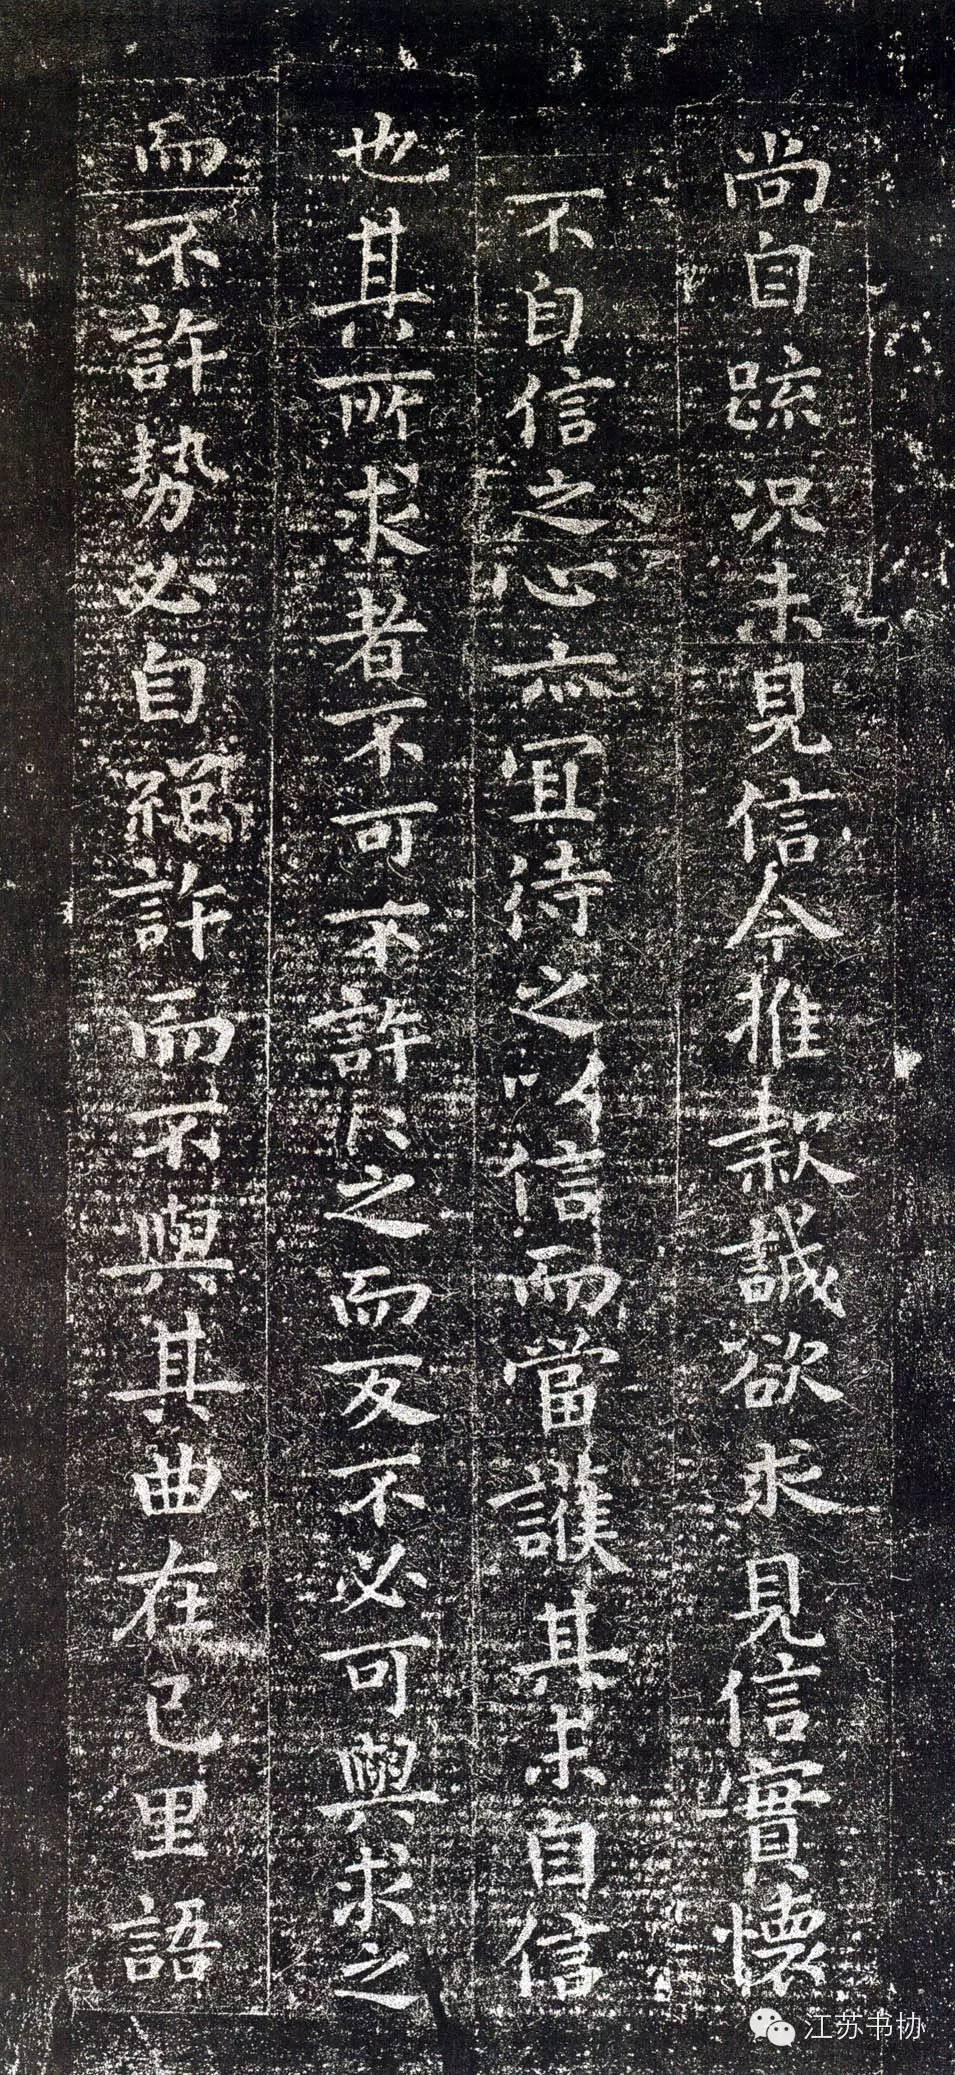 尚自疏况未見信今推款誠欲求見信實懷
不自信之心亦宜待之以信而當護其未自信
也其所求者不可不許許之而反不必可與求之
而不許勢必自絕許而不與其曲在己里語
江苏书协